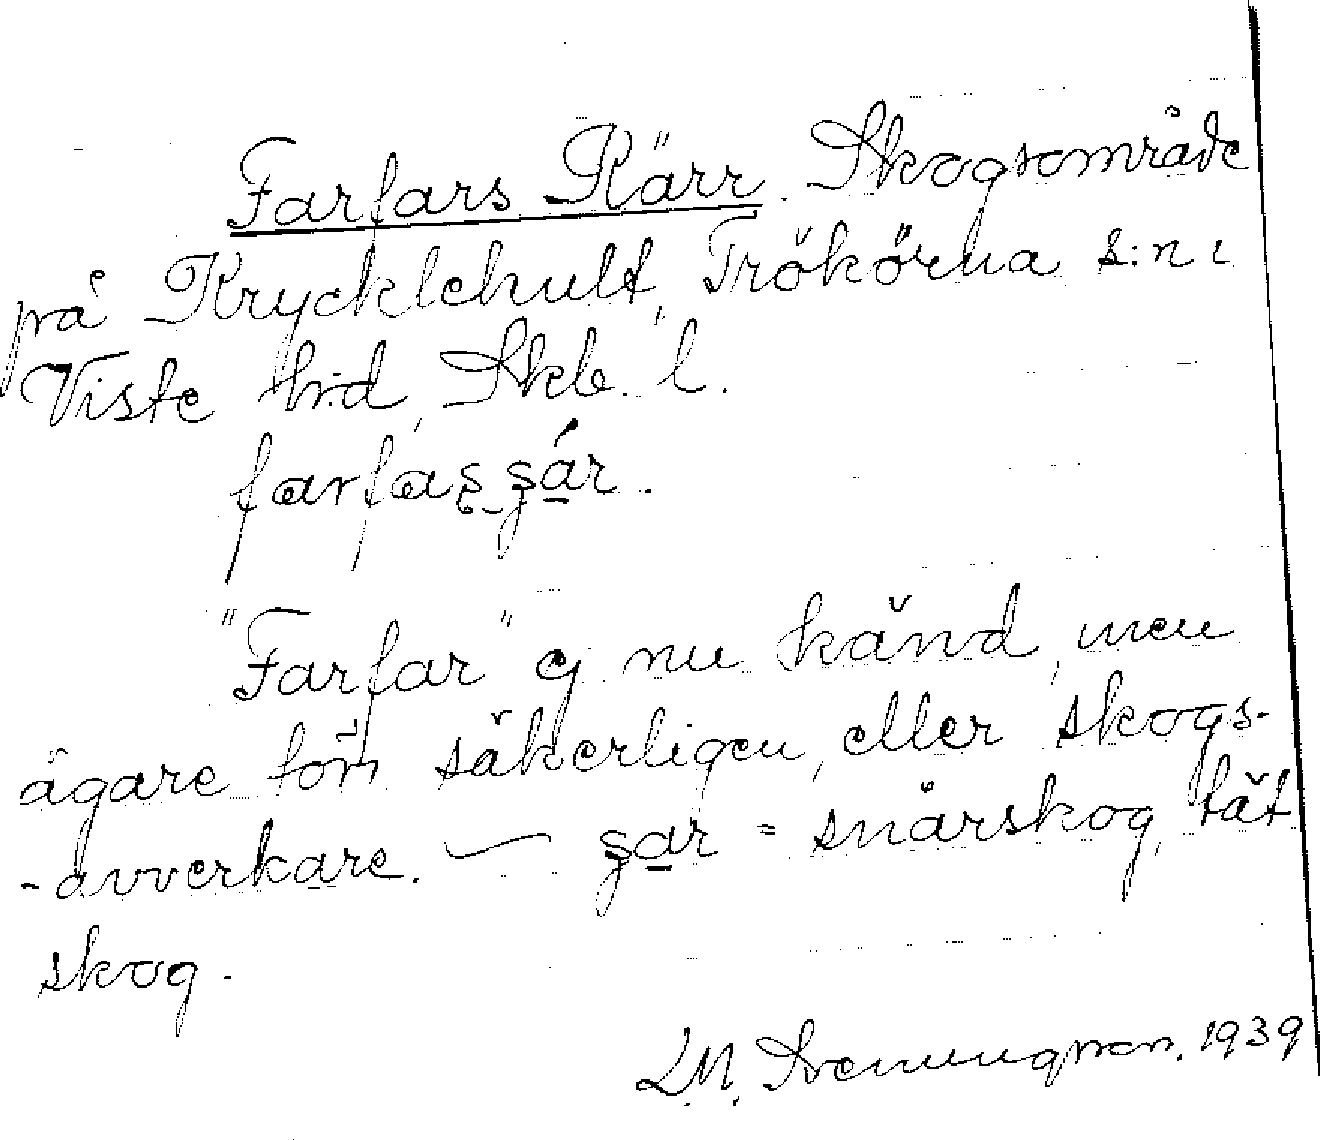 Farfars Kärr. Skogsområde
på Krycklehult, Trökörna s:n i
Viste hd, Skb. l.
farfas̨ s̨ár.
"Farfar" ej nu känd, men
ägare säkerligen, eller skogs-
-avverkare. — s̨ar = snårskog, tät
skog.
L.M. Svenungsson. 1939